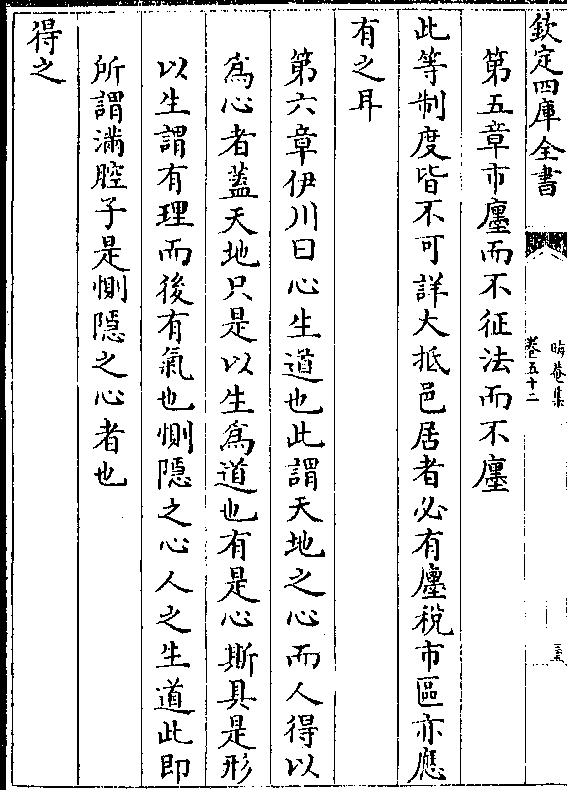 欽定四庫全書
晦菴集
卷五十二
第五章市廛而不征法而不廛
此等制度皆不可詳大抵邑居者必有廛稅市區亦應
有之耳
第六章伊川曰心生道也此謂天地之心而人得以
為心者蓋天地只是以生為道也有是心斯具是形
以生謂有理而後有氣也惻隱之心人之生道此即
所謂滿腔子是惻隱之心者也
得之